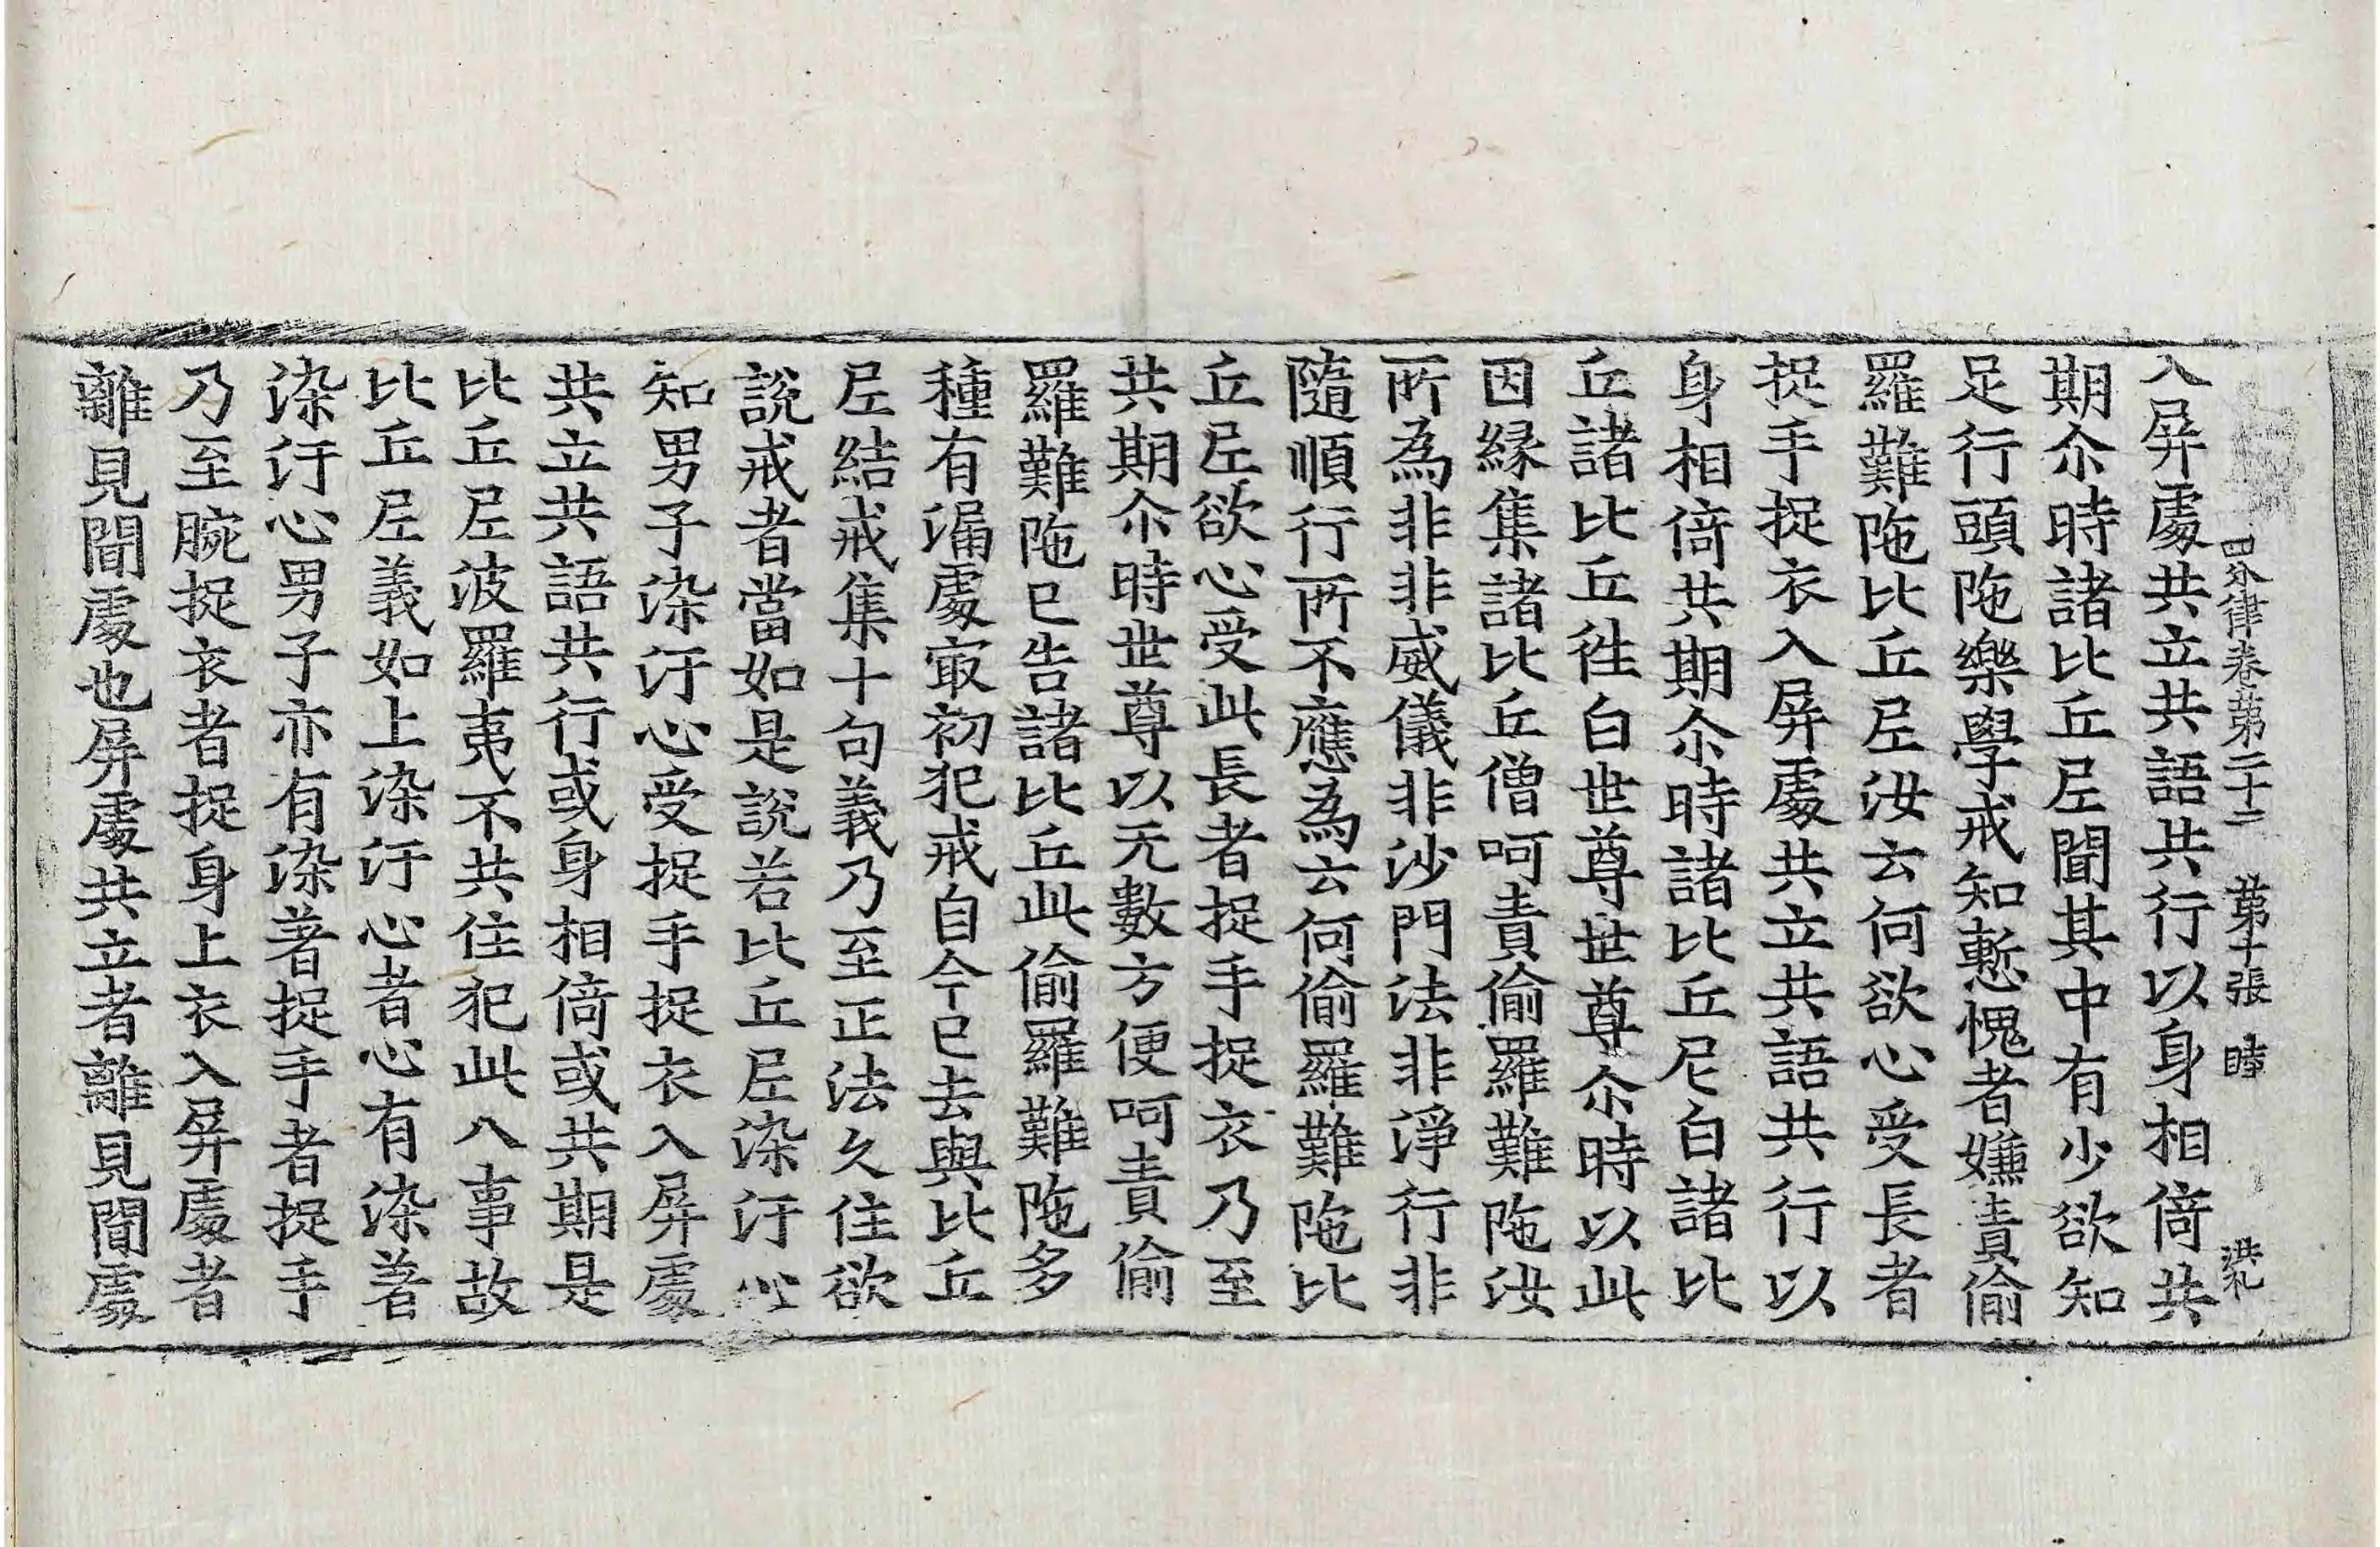 四分律卷第二十二 第十張 時
入屏處共立共語共行以身相倚共
期尒時諸比丘尼聞其中有少欲知
足行頭陁樂學戒知慙愧者嫌責偷
羅難陁比丘尼汝云何欲心受長者
捉手捉衣入屏處共立共語共行以
身相倚共期尒時諸比丘尼白諸比
丘諸比丘徃白世尊世尊尒時以此
因縁集諸比丘僧呵責偷羅難陁汝
所為非非威儀非沙門法非淨行非
隨順行所不應為云何偷羅難陁比
丘尼欲心受此長者捉手捉衣乃至
共期尒時世尊以无數方便呵責偷
羅難陁已告諸比丘此偷羅難陁多
種有漏處㝡初犯戒自今已去與比丘
尼結戒集十句義乃至正法久住欲
說戒者當如是說若比丘尼染汙心
知男子染汙心受捉手捉衣入屏處
共立共語共行或身相倚或共期是
比丘尼波羅夷不共住犯此八事故
比丘尼義如上染汙心者心有染著
染汙心男子亦有染著捉手者捉手
乃至腕捉衣者捉身上衣入屏處者
離見聞處也屏處共立者離見聞處